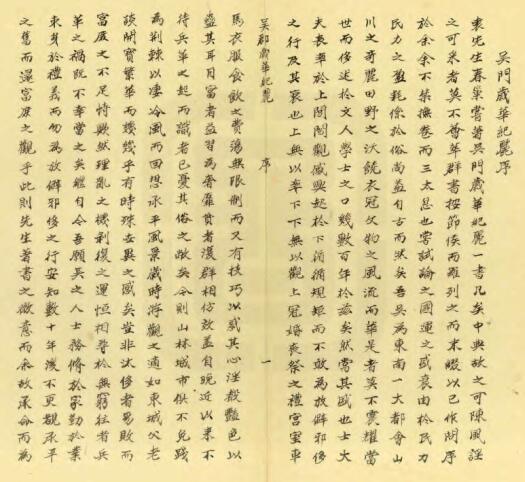 吳門歲華紀麗序
袁先生春巢嘗著吳門歲華紀麗一書凡吳中典故之可陳風謠
之可采者莫不薈萃群書按節候而羅列之而末綴以己作問序
於余余不禁撫卷而三太息也嘗試論之國運之盛衰由於民力
民力之盈耗係於俗尚蓋自古而然矣吾吳為東南一大都會山
川之奇麗田野之沃饒衣冠文物之風流而華者莫不震耀當
世而侈述於文人學士之口幾數百年於茲矣然當其盛也士大
夫表率於上閭閻觀感興起於下循循規矩而不敢為放僻邪侈
之行及其衰也上無以率下下無以觀上冠婚喪祭之禮宮室車
吳郡歲華紀麗 序 一
馬衣服食飲之費蕩無限制而又有技巧以惑其心淫豔色以
蠱其耳目富者益習為奢靡貧者群相仿效蓋自晚近以來不
待兵革之起而識者已憂其俗之敝矣今則山林城市俱不免踐
為荊棘以淒冷風而回思承平風景歲時游觀之適如東城父老
談開寶繁華而幾幾乎有時殊世異之感矣豈非汰侈者易敗而
富庶之不足恃歟然理亂之機剝復之運恒相尋於無窮往者兵
革之禍既不幸當之矣繼自今吾願吳之人士務脩於家勤於業
束身於禮義而勿為放僻邪侈之行安知數十年後不更覩承平
之舊而還富庶之觀乎此則先生著書之微意而余故承命而為